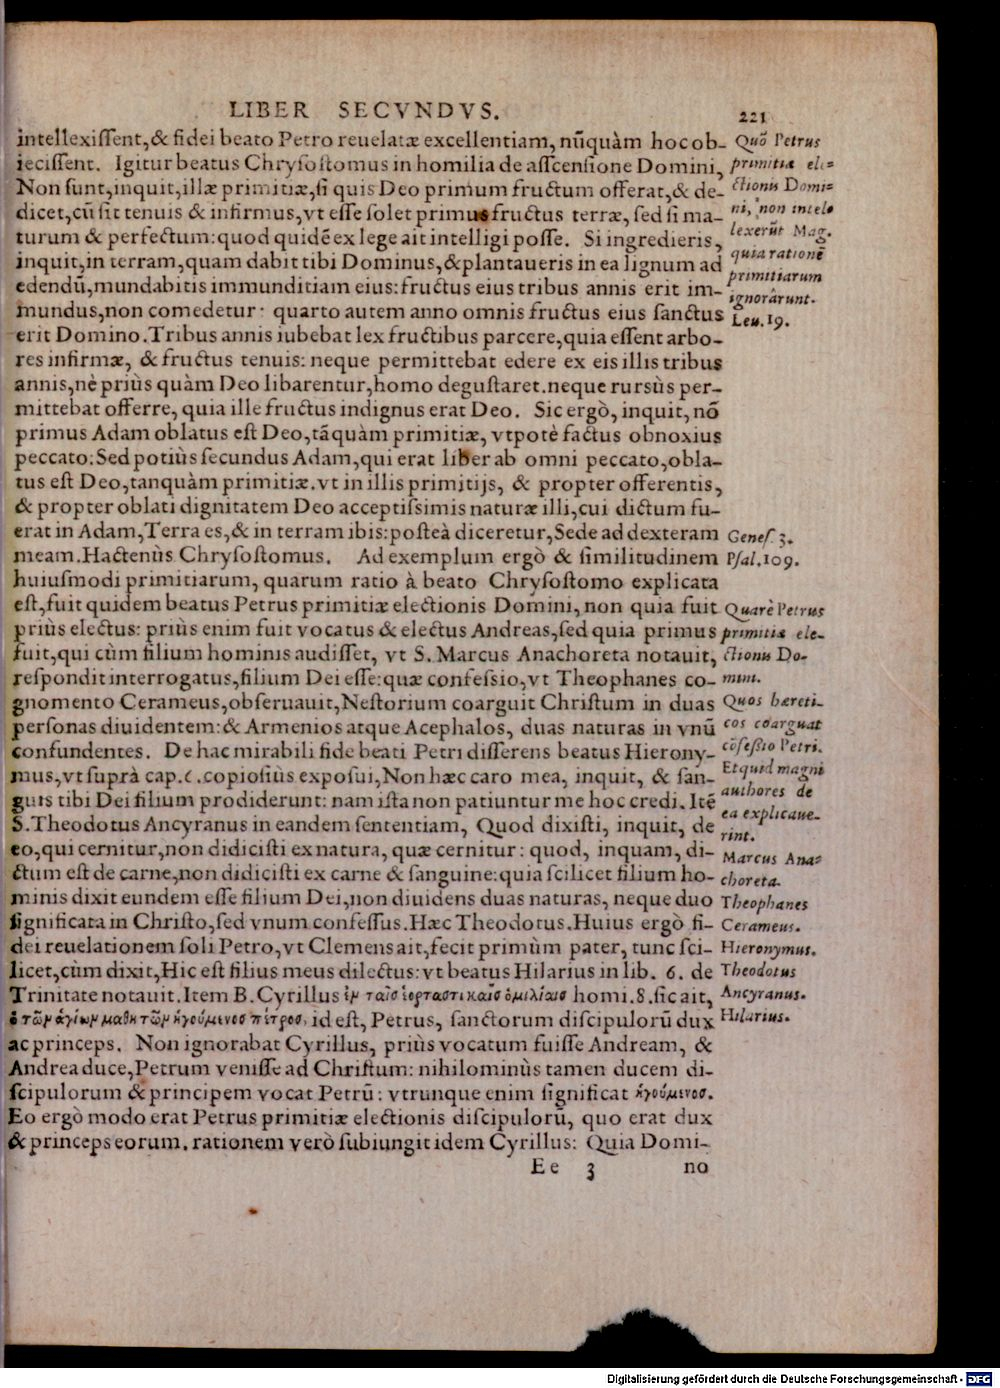 LIBER SECVNDVS. 221
intellexiſſent,& fidei beato Petro reuelatæ excellentiam, nũquàm hoc ob-
iecißent. Igitur beatus Chryſoſtomus in homilia de aſſcenſione Domini,
Non ſunt,inquit,illæ primitiæ,ſi quis Deo primum fructum offerat,& de-
dicet,cũ ſit tenuis & infirmus,vt eſſe ſolet primus fructus terræ, ſed ſi ma-
turum & perfectum:quod quidẽ ex lege ait intelligi poſſe. Si ingredieris,
inquit,in terram,quam dabit tibi Dominus,&plantaueris in ea lignum ad
edendũ,mundabitis immunditiam eius:fructus eius tribus annis erit im-
mundus,non comedetur: quarto autem anno omnis fructus eius ſanctus
erit Domino.Tribus annis iubebat lex fructibus parcere,quia eſſent arbo-
res infirmæ, & fructus tenuis: neque permittebat edere ex eis illis tribus
annis,nè priùs quàm Deo libarentur,homo deguſtaret.neque rursùs per-
mittebat offerre, quia ille fructus indignus erat Deo. Sic ergò, inquit, nõ
primus Adam oblatus eſt Deo,tãquàm primitiæ, vtpotè factus obnoxius
peccato:Sed potiùs ſecundus Adam,qui erat liber ab omni peccato,obla-
tus eſt Deo,tanquàm primitiæ.vt in illis primitijs, & propter offerentis,
& propter oblati dignitatem Deo acceptiſsimis naturæ illi,cui dictum fu-
erat in Adam,Terra es,& in terram ibis:poſteà diceretur,Sede ad dexteram
meam.Hactenùs Chryſoſtomus. Ad exemplum ergò & ſimilitudinem
huiuſmodi primitiarum, quarum ratio à beato Chryſoſtomo explicata
eſt,fuit quidem beatus Petrus primitiæ electionis Domini, non quia fuit
priùs electus: priùs enim fuit vocatus & electus Andreas,ſed quia primus
fuit,qui cùm filium hominis audiſſet, vt S. Marcus Anachoreta notauit,
reſpondit interrogatus,filium Dei eſſe:quæ confeſsio,vt Theophanes co-
gnomento Cerameus,obſeruauit,Neſtorium coarguit Chriſtum in duas
perſonas diuidentem:& Armenios atque Acephalos, duas naturas in vnũ
confundentes. De hac mirabili fide beati Petri differens beatus Hierony-
mus,vt ſuprà cap.6.copioſiùs expoſui,Non hæc caro mea, inquit, & ſan-
guis tibi Dei filium prodiderunt: nam iſta non patiuntur me hoc credi. Itẽ
S.Theodotus Ancyranus in eandem ſententiam, Quod dixiſti, inquit, de
eo,qui cernitur,non didiciſti ex natura, quæ cernitur: quod, inquam, di-
ctum eſt de carne,non didiciſti ex carne & ſanguine:quia ſcilicet filium ho-
minis dixit eundem eſſe filium Dei,non diuidens duas naturas, neque duo
ſignificata in Chriſto,ſed vnum confeſſus.Hæc Theodotus.Huius ergò fi-
dei reuelationem ſoli Petro,vt Clemens ait,fecit primùm pater, tunc ſci-
licet,cùm dixit,Hic eſt filius meus dilectus: vt beatus Hilarius in lib. 6. de
Trinitate notauit.Item B.Cyrillus ἐν ταῖσ ἑορταστικαῖσ ὁμιλίαισ homi.8.ſic ait,
ὁ τῶν ἁγίων μαθητῶν ἡγούμενοσ πέτροσ, id eſt, Petrus, ſanctorum diſcipulorũ dux
ac princeps. Non ignorabat Cyrillus, priùs vocatum fuiſſe Andream, &
Andrea duce,Petrum veniſſe ad Chriſtum: nihilominùs tamen ducem di-
ſcipulorum & principem vocat Petrũ: vtrunque enim ſignificat ἡγούμενοσ.
Eo ergò modo erat Petrus primitiæ electionis diſcipulorũ, quo erat dux
& princeps eorum. rationem verò ſubiungit idem Cyrillus: Quia Domi-
Ee 3 no
Quõ Petrus
primitiæ ele=
ctionis Domi=
ni, non intel=
lexerũt Mag.
quia rationẽ
primitiarum
ignorârunt.
Leu.19.
Geneſ.3.
Pſal.109.
Quarè Petrus
primitiæ ele-
ctionis Do-
mini.
Quos hæreti-
cos coarguat
cõfeſsio Petri.
Et quid magni
authores de
ea explicaue-
rint.
Marcus Ana=
choreta.
Theophanes
Cerameus.
Hieronymus.
Theodotus
Ancyranus.
Hilarius.
Digitalisierung gefördert durch die Deutsche Forschungsgemeinschaft - DFG